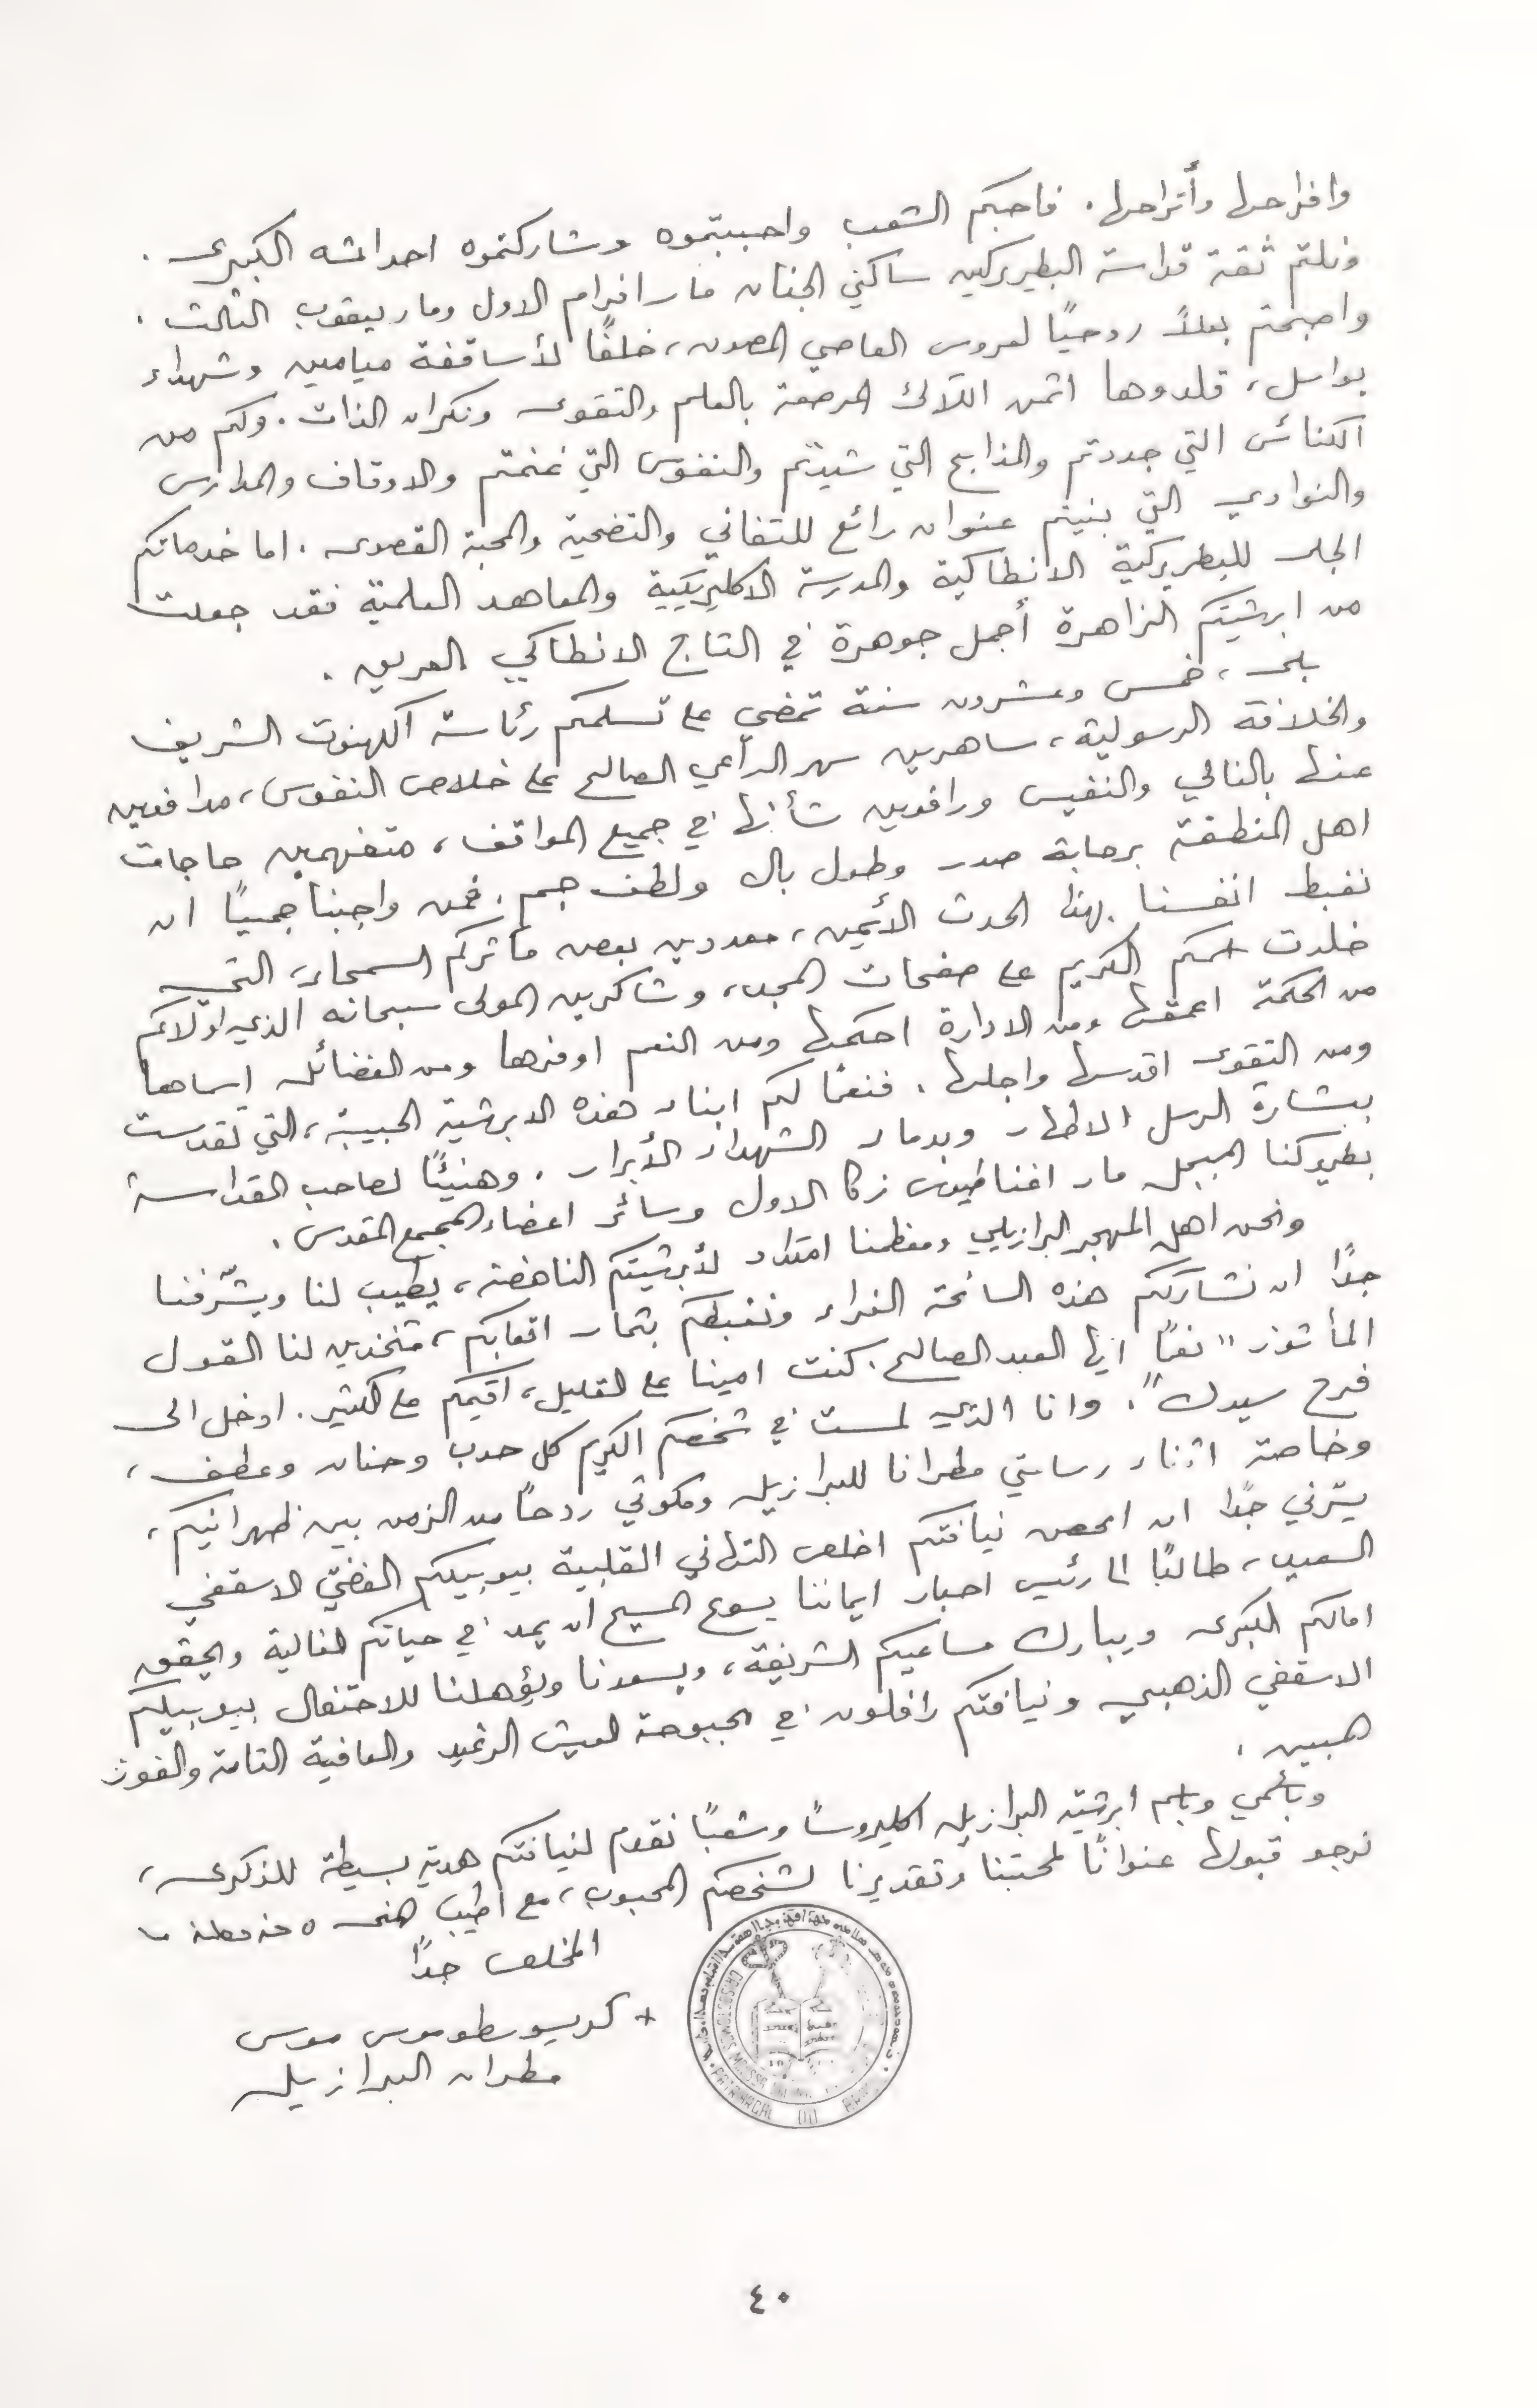 وافراحها وأتراحها. فاحبكم الشعب واحببتموه وشاركتموه احداثه الكبرى.
ونلتم ثقة قداسة البطريركين ساكني الجنان مار افرام الاول ومار يعقوب الثالث.
واصبحتم بعلاً روحيًا لعروس العاصي المصون، خلفًا لأساقفة ميامين وشهداء
بواسل، قلدوها اثمن اللآلئ المرصعة بالعلم والتقوى ونكران الذات. وكم من
الكنائس التي جددتم والمذابح التي شيدتم والنفوس التي غنمتم والاوقاف والمدارس
والنوادي التي بنيتم عنوان رائع للتفاني والتضحية والمحبة القصوى. اما خدماتكم
الجلى للبطريركية الانطاكية والمدرسة الاكليريكية والمعاهد العلمية فقد جعلت
من ابرشيتكم الزاهرة أجمل جوهرة في التاج الانطاكي العريق.
بلى، خمس وعشرون سنة تمضي على تسلمكم رئاسة الكهنوت الشريف
والخلافة الرسولية، ساهرين سهر الراعي الصالح على خلاص النفوس، مدافعين
عنها بالغالي والنفيس ورافعين شأنها في جميع المواقف، متفهمين حاجات
اهل المنطقة برحابة صدر وطول بال ولطف جم. فمن واجبنا جميعًا ان
نغبط انفسنا بهذا الحدث الأثمين، معددين بعض مآثركم السمحاء، التي
خلدت اسمكم الكريم على صفحات المجد، وشاكرين المولى سبحانه الذي اولاكم
من الحكمة اعمقها ومن الادارة احكمها ومن النعم اوفرها ومن الفضائل اسماها
ومن التقوى اقدسها واجلها. فنعمًا لكم ابناء هذه الابرشية الحبيبة، التي تقدست
ببشارة الرسل الاطهار وبدماء الشهداء الأبرار. وهنيئًا لصاحب القداسة
بطريركنا المبجل مار اغناطيوس زكا الاول وسائر اعضاء المجمع المقدس.
ونحن اهل المهجر البرازيلي ومعظمنا امتداد لأبرشيتكم الناهضة، يطيب لنا ويشرّفنا
جدًا ان نشارككم هذه السانحة الغراء ونغبطكم بثمار اتعابكم، متخذين لنا القول
المأثور "نعمًا ايها العبد الصالح. كنت امينا على القليل، اقيمكم على الكثير. ادخل الى
فرح سيدك". وانا الذي لمست في شخصكم الكريم كل حدب وحنان وعطف،
وخاصة اثناء رسامتي مطرانا للبرازيل ومكوثي ردحًا من الزمن بين ظهرانيكم،
يسّرني جدًا ان امحض نيافتكم اخلص التهاني القلبية بيوبيلكم الفضيّ الاسقفي
السعيد، طالبًا الى رئيس احبار ايماننا يسوع المسيح ان يمد في حياتكم الغالية ويحقق
امالكم الكبرى ويبارك مساعيكم الشريفة، ويسعدنا ويؤهلنا للاحتفال بيوبيلكم
الاسقفي الذهبي ونيافتكم رافلون في بحبوحة العيش الرغيد والعافية التامة والفوز
المبين.
وبأسمي وباسم ابرشية البرازيل اكليروسًا وشعبًا نقدم لنيافتكم هدية بسيطة للذكرى،
نرجو قبولها عنوانًا لمحبتنا وتقديرنا لشخصكم المحبوب، مع اطيب
المخلص جدًا
+ كريسوسطوموس موسى
مطران البرازيل
٤٠